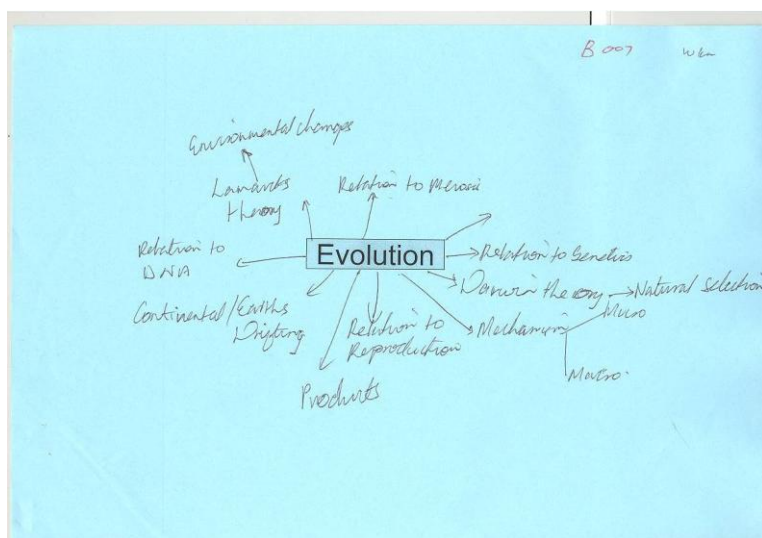 B 007
Environmental changes
Lamarcks
theory
Relation to Meiosis
Relation to
DNA
Evolution
Relation to Genetics
Darwin theory
Natural selection
Continental/Earths
Drifting
Relation to
Reproduction
Mechanism
Micro
Macro.
Products